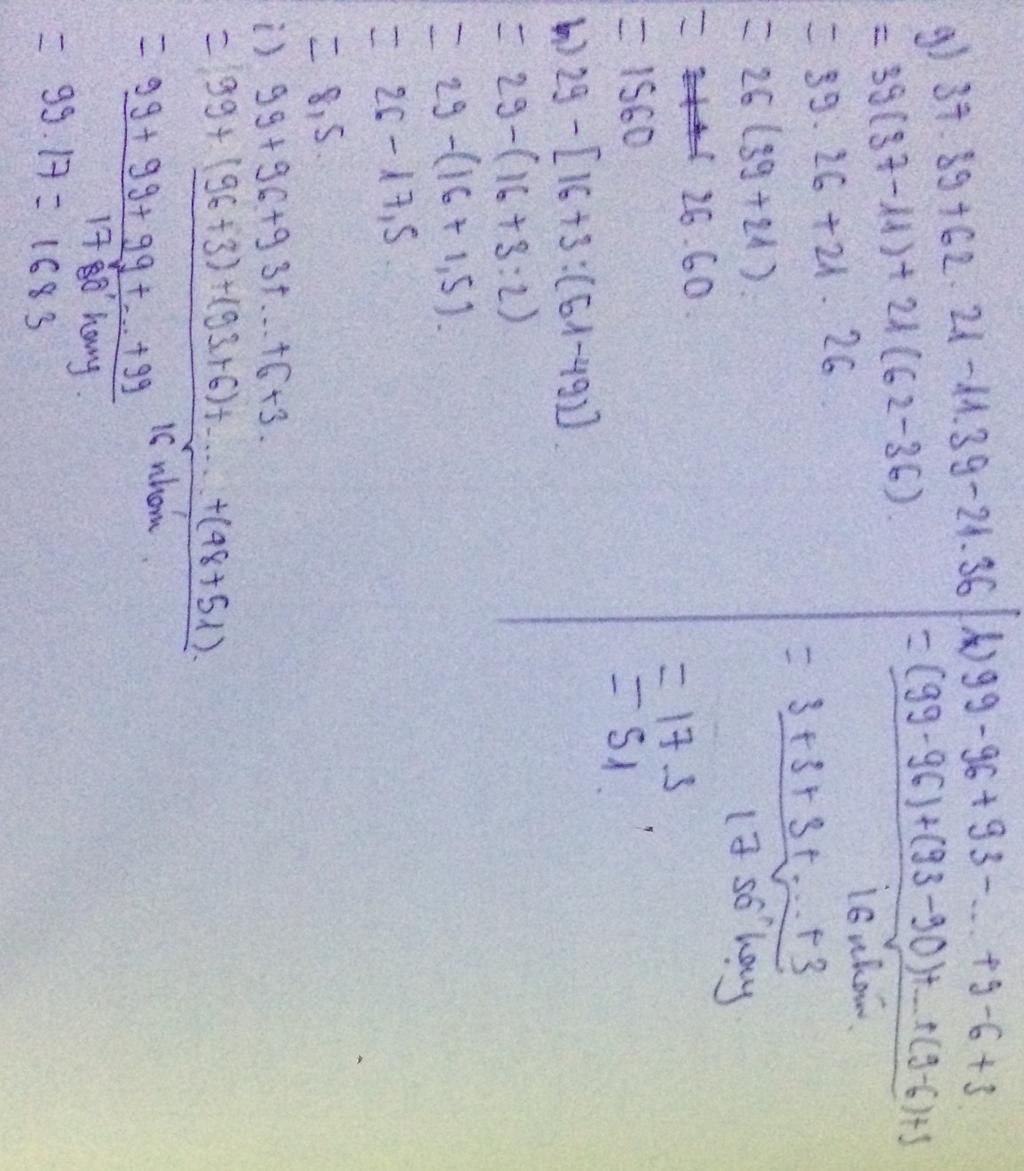 g) 37.39+62.21-11.39-21.36
= 39(37-11)+21(62-36).
= 39.26+21.26
= 26(39+21).
= 26.60.
= 1560
h) 29-[16+3:(51-49)].
= 29-(16+3:2)
= 29-(16+1,5).
= 26-17,5.
= 8,5.
i) 99+96+93+...+6+3.
= 99+(96+3)+(93+6)+.....+(48+51).
16 nhóm.
= 99+99+99+...+99
17 số hạng.
= 99.17=1683
k) 99-96+93-...+9-6+3
= (99-96)+(93-90)+...+(9-6)+3
16 nhóm.
= 3+3+3+...+3
17 số hạng.
= 17.3
= 51.